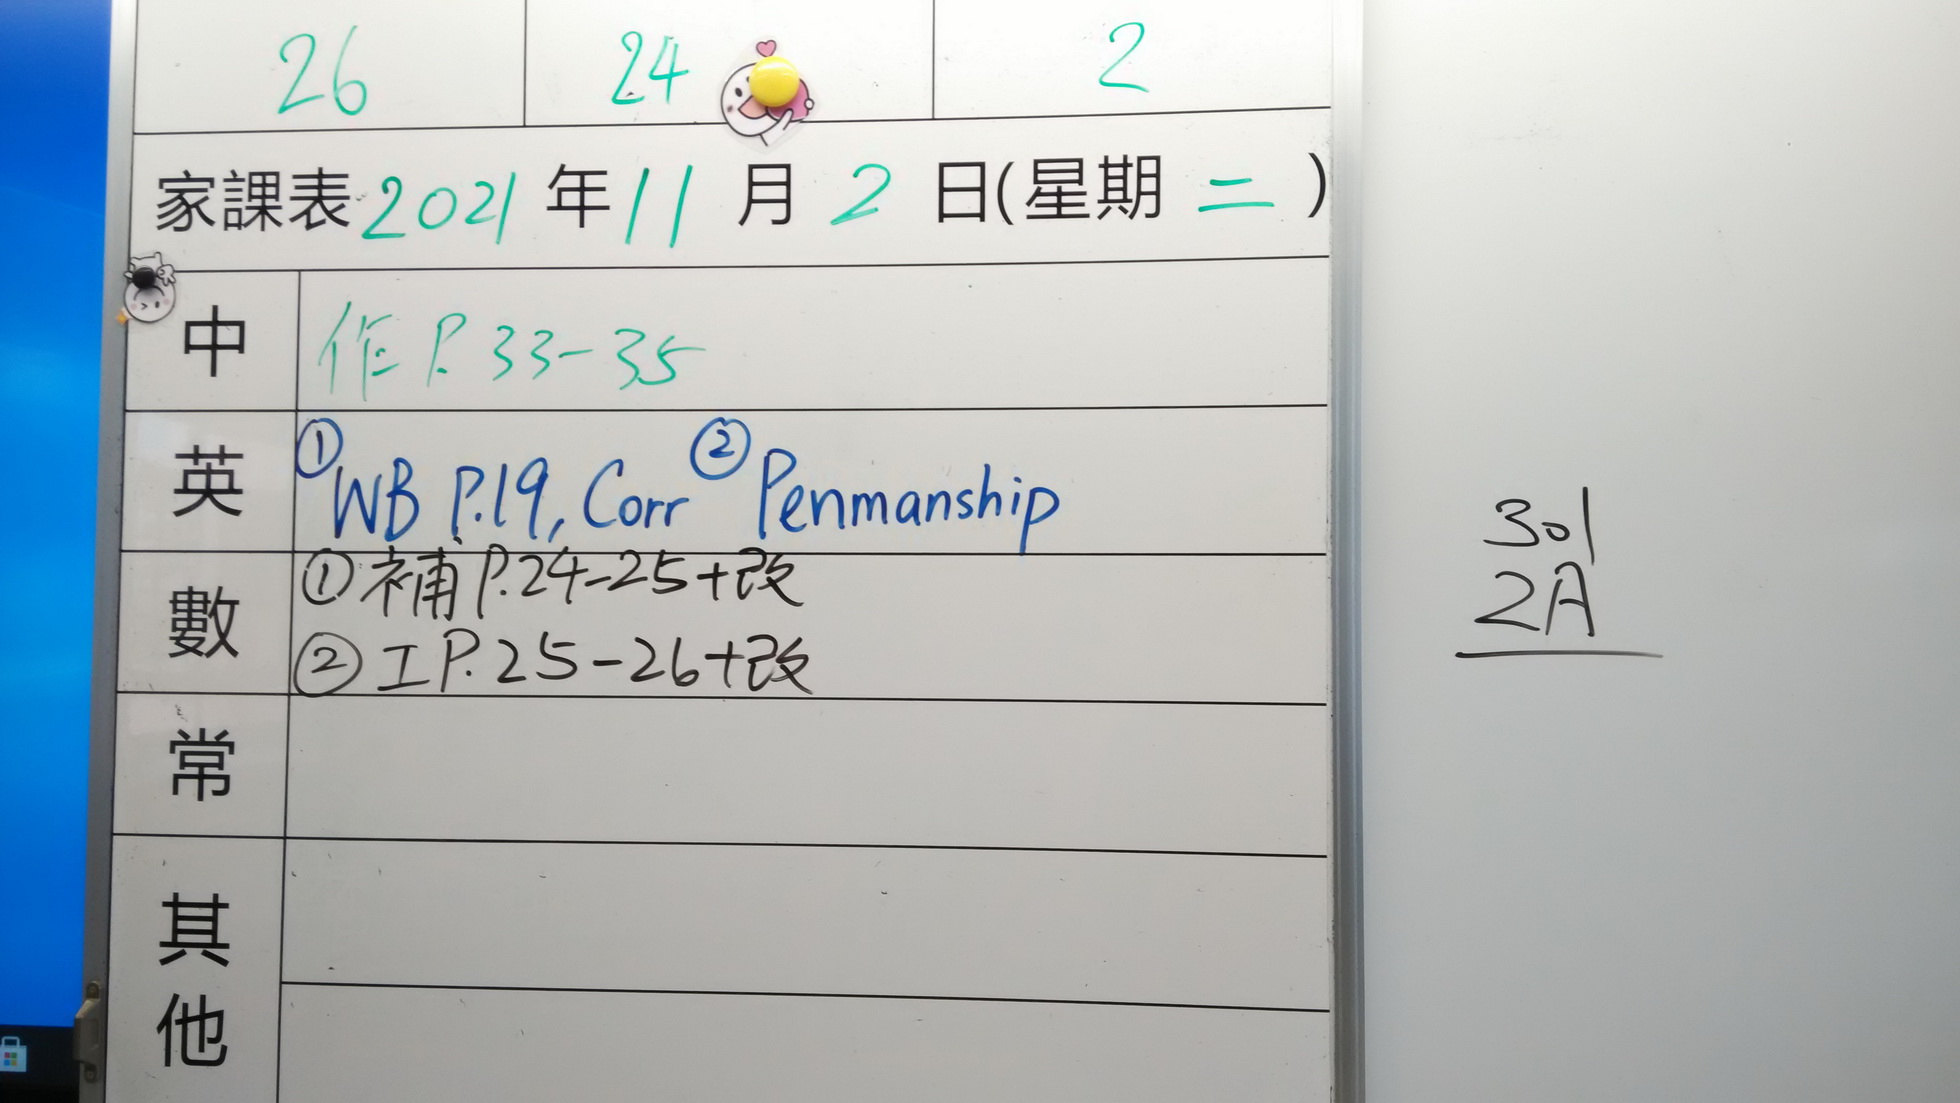 26 24 2
家課表 2021 年 11 月 2 日(星期 二 )
中 作 P. 33-35
英 ① WB P.19, Corr ② Penmanship
數 ① 補 P.24-25+改
② 工 P.25-26+改
常
其他
301
2A